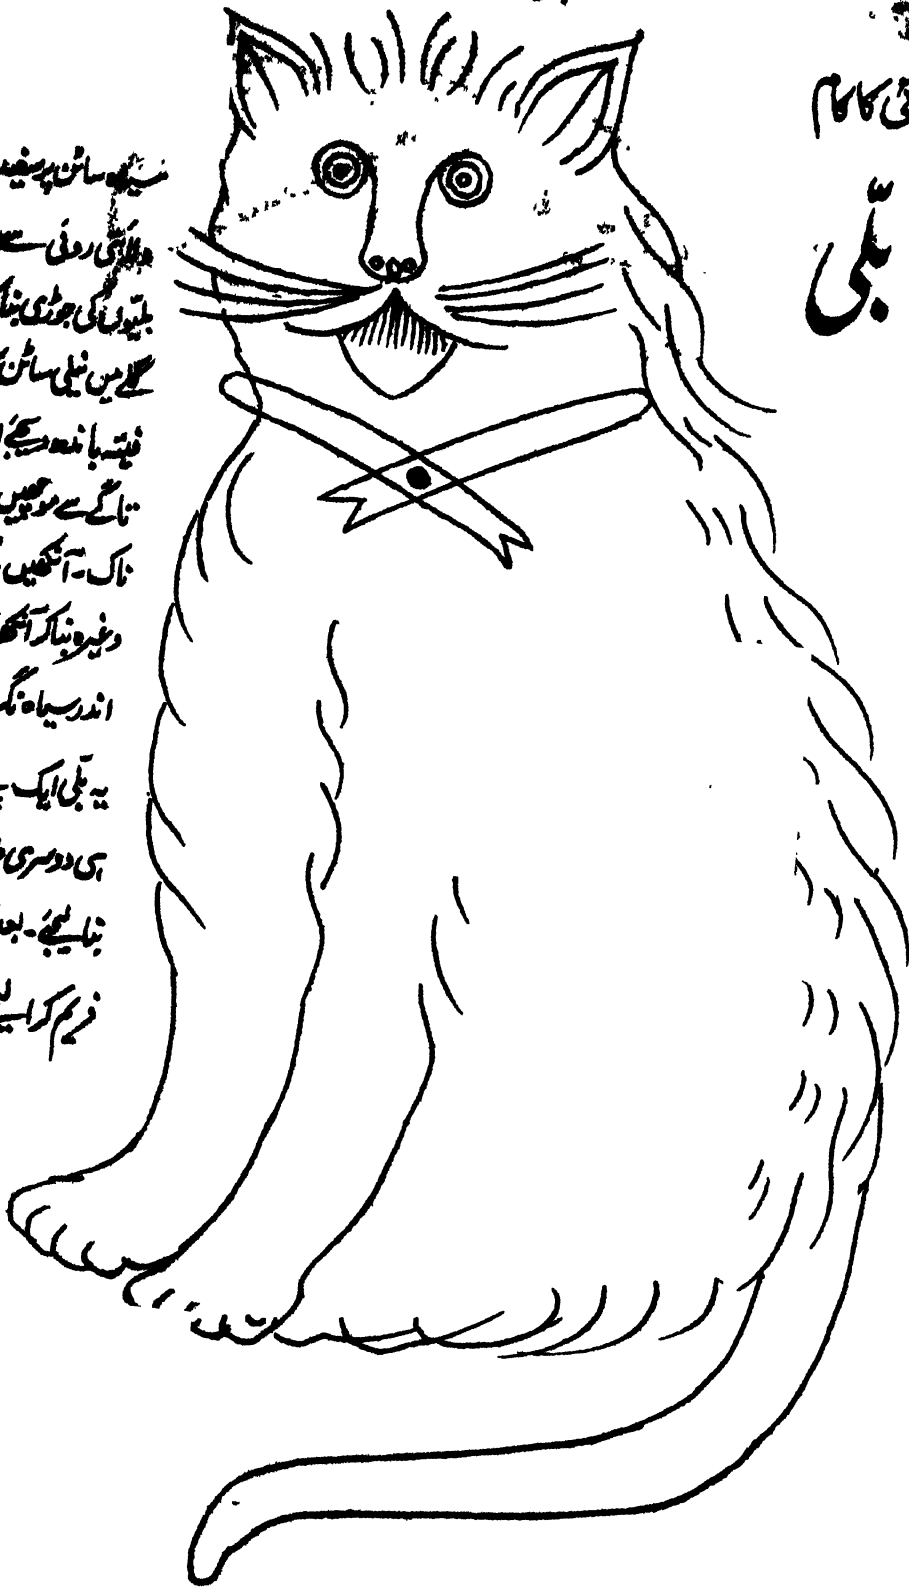 کا کام
بلّی
سیاہ ساٹن پر سفید
ولائتی روئی سے
بلیّوں کی جوڑی بنا
گلے میں نیلی ساٹن
فیتہ باندھ دیجئے
تاگے سے مونچھیں
ناک ۔ آنکھیں
وغیرہ بنا کر آنکھ
اندر سیاہ نگ
یہ بلّی ایک
اسی دوسری
بنا لیجئے ۔
فریم کرا